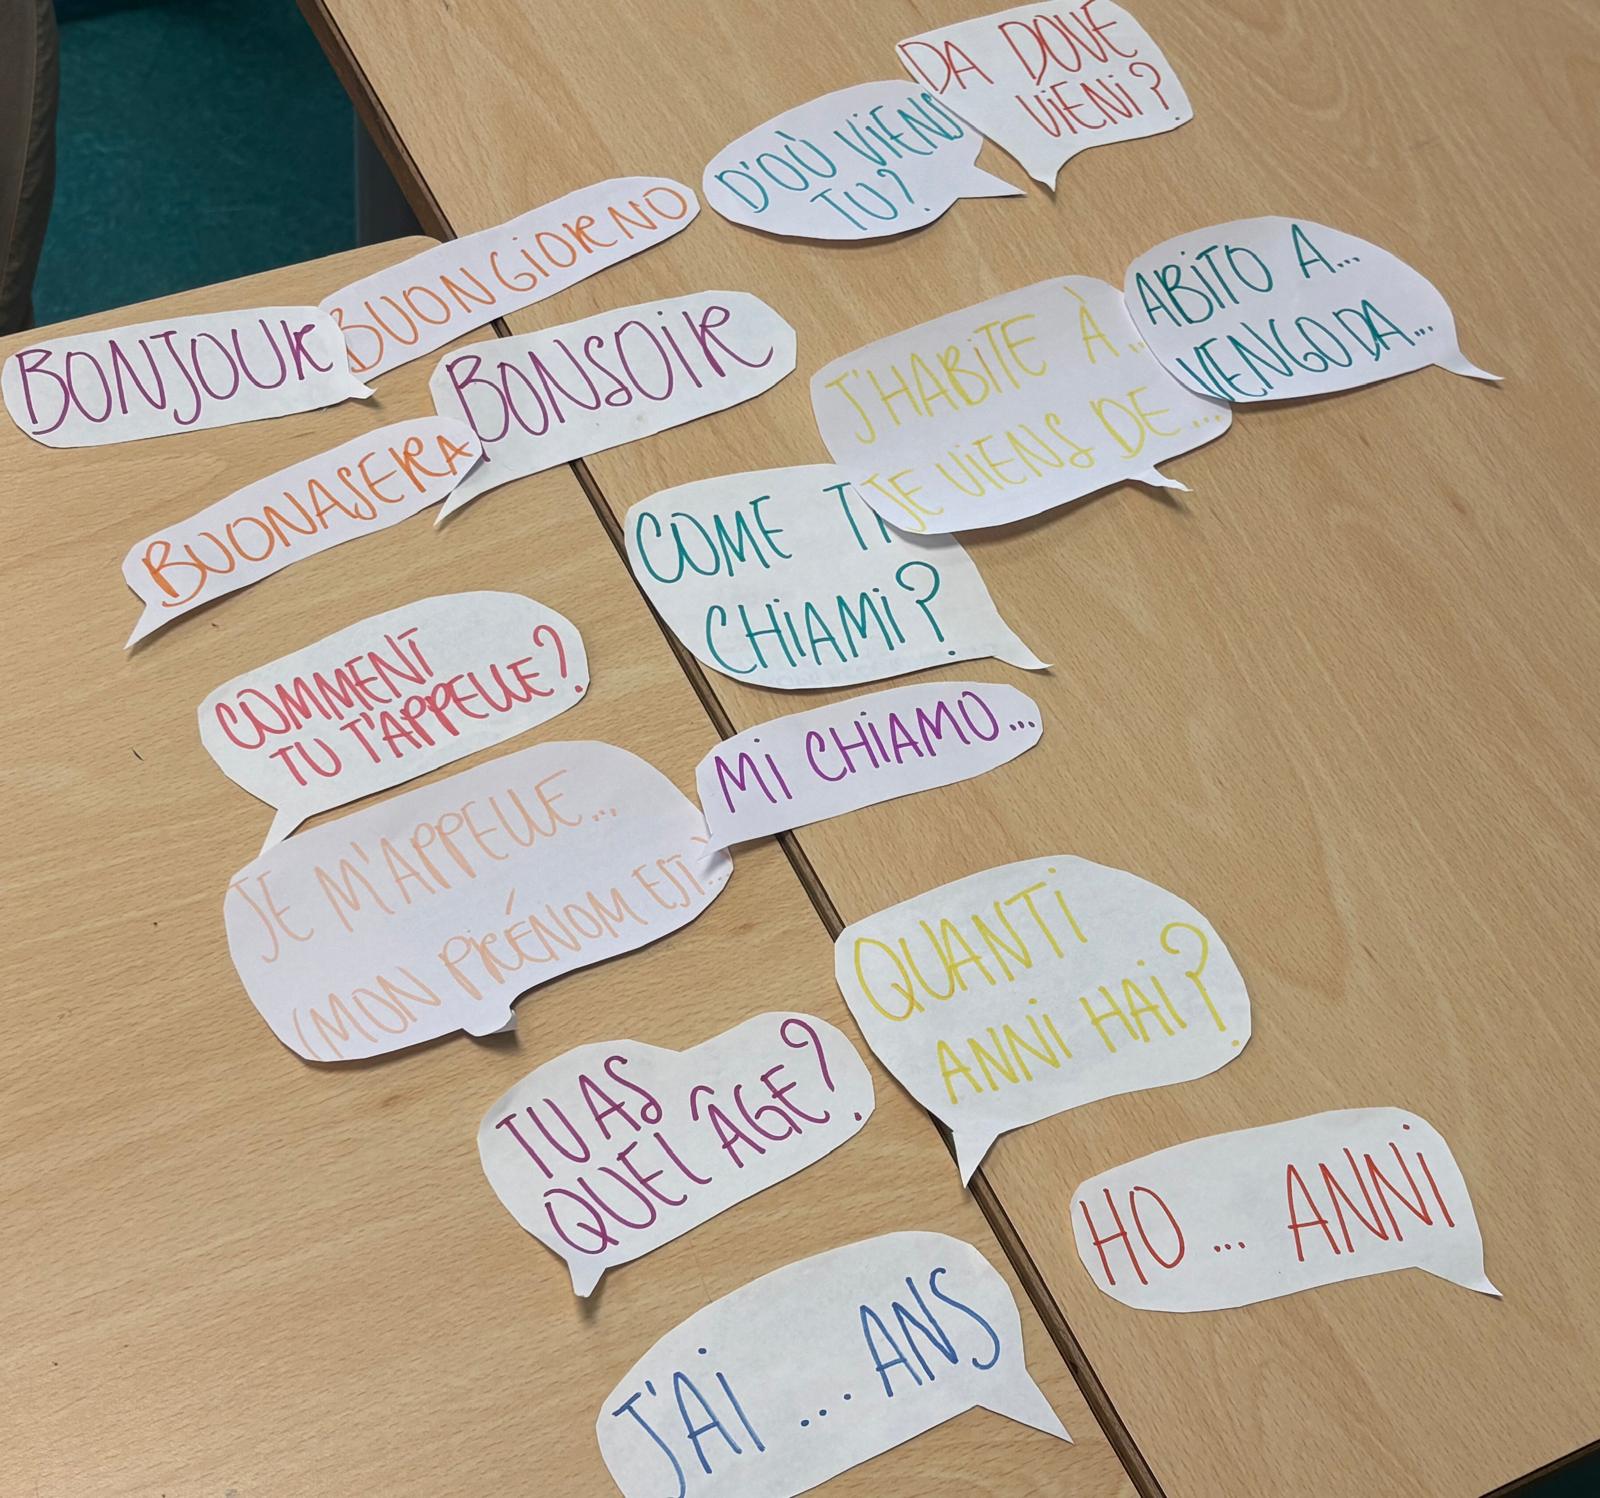 DA DOVE
VIENI?
D'OÙ VIENS
TU?
BUONGIORNO
BONJOUR
BONSOIR
ABITO A...
VENGO DA...
J'HABITE À..
JE VIENS DE...
BUONASERA
COME TI
CHIAMI?
COMMENT
TU T'APPELLE?
MI CHIAMO...
JE M'APPELLE...
(MON PRÉNOM EST...)
QUANTI
ANNI HAI?
TU AS
QUEL ÂGE?
HO... ANNI
J'AI ... ANS